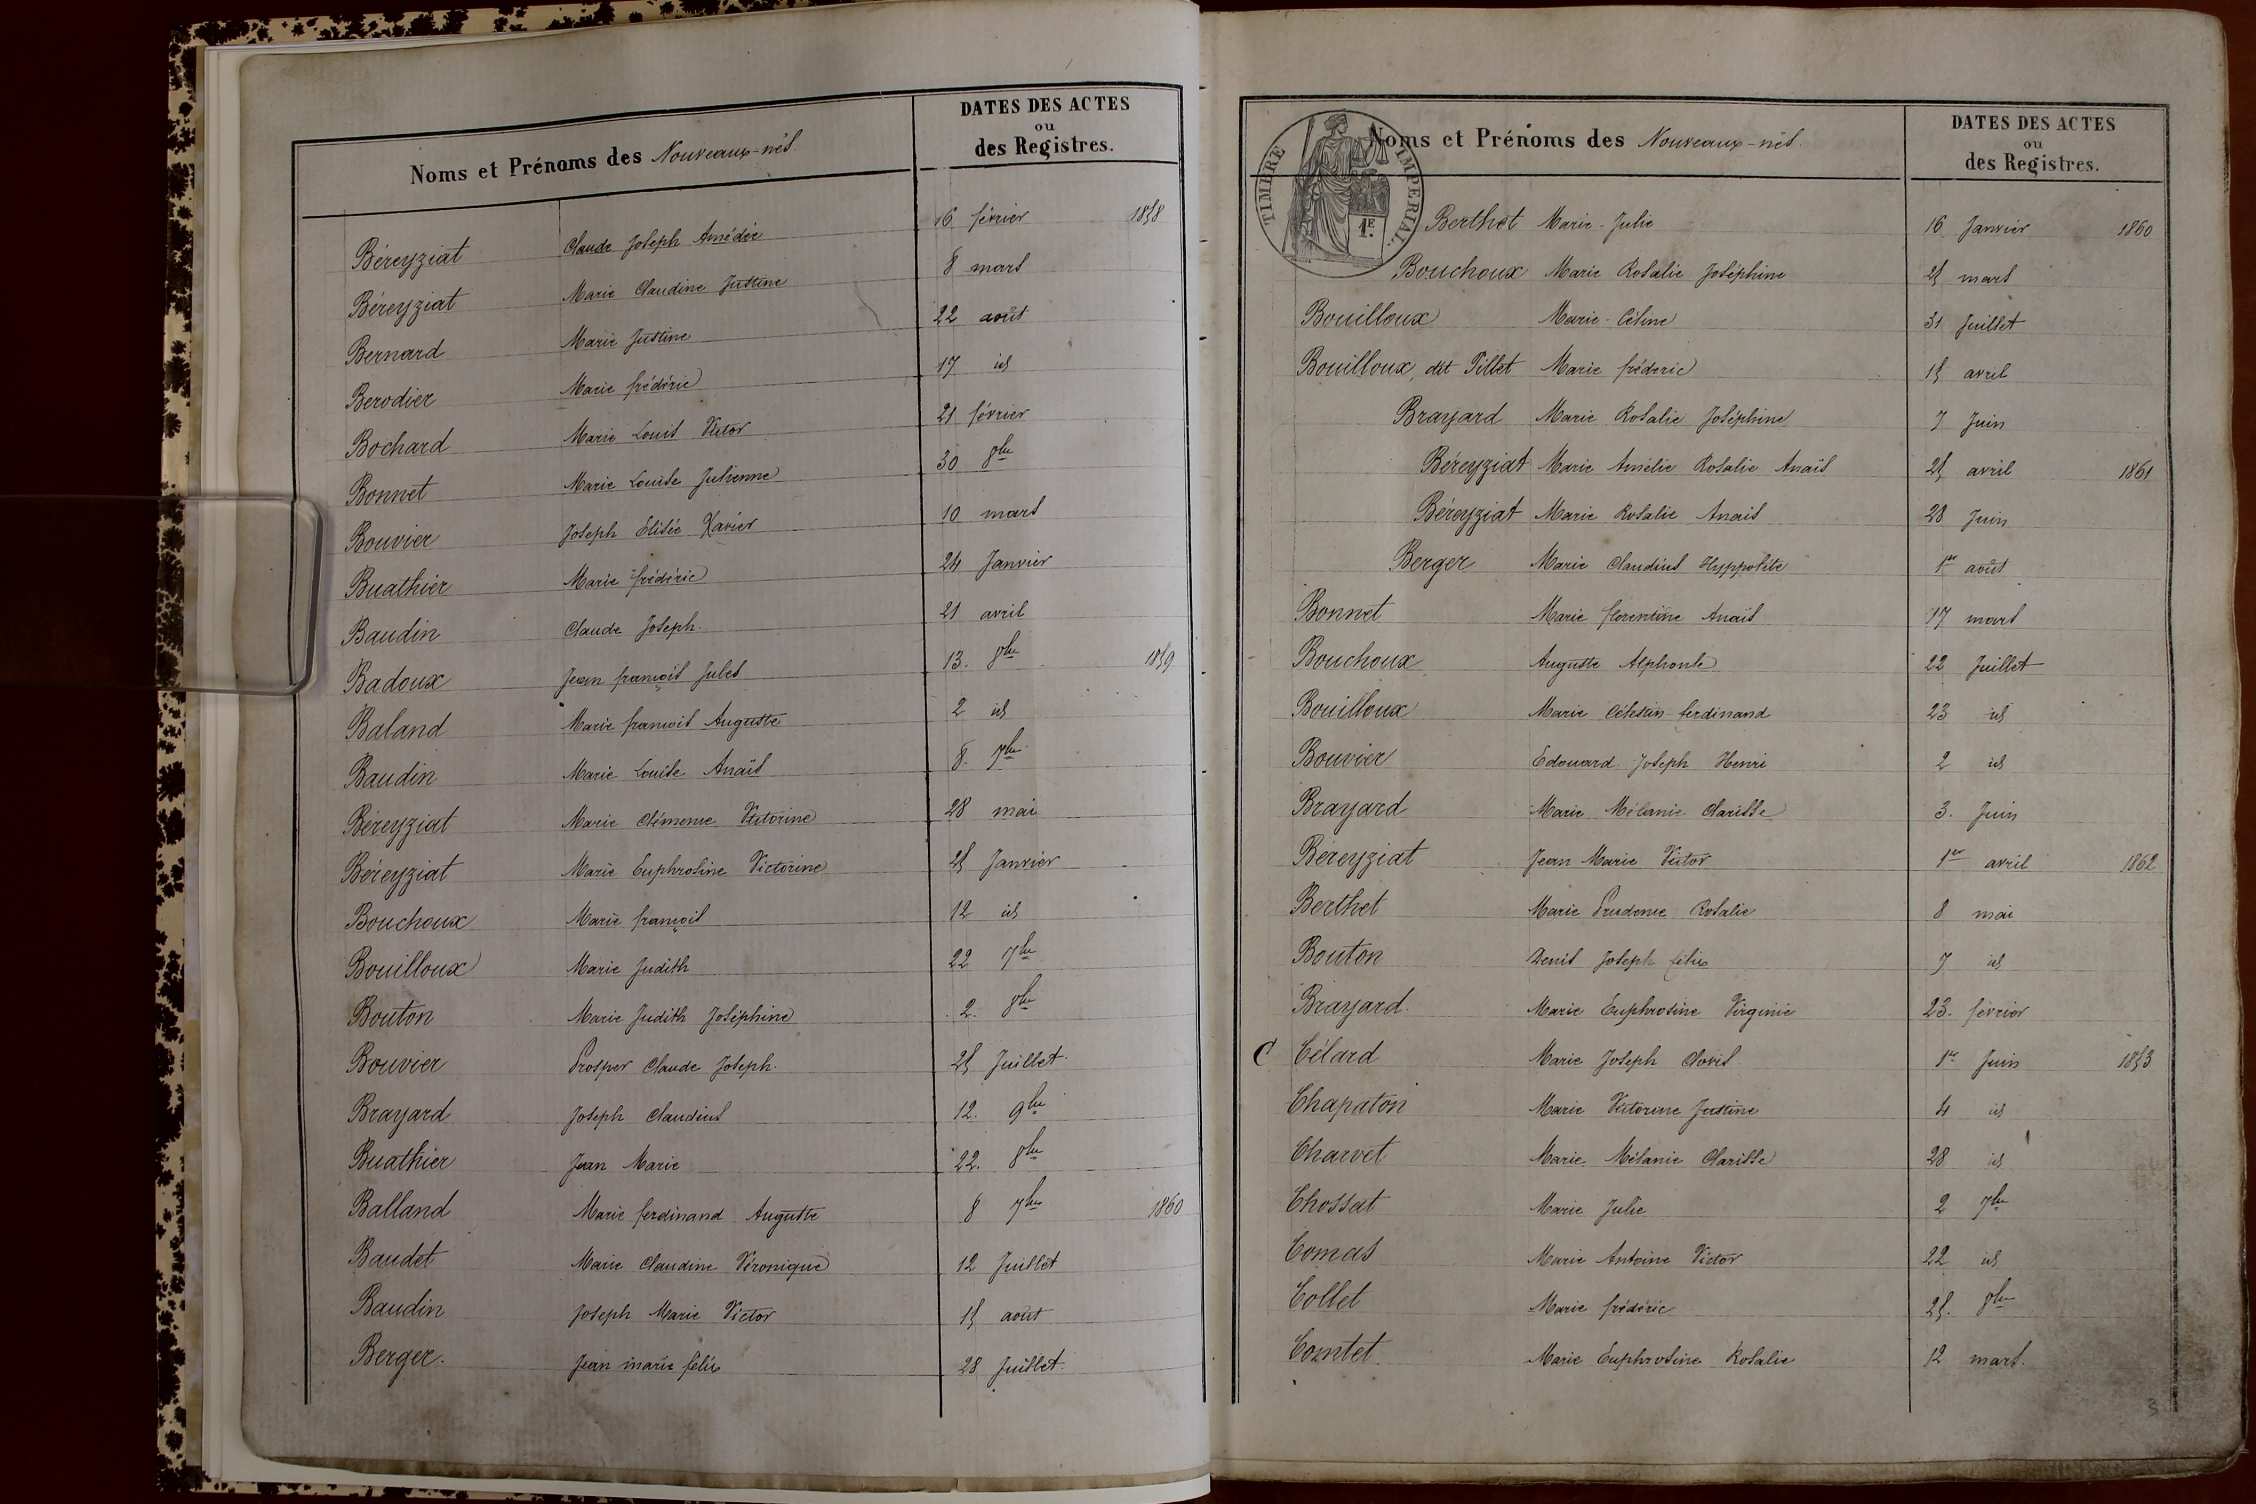 Noms et Prénoms des Nouveaux-nés.
DATES DES ACTES
ou
des Registres.
Béreyziat Claude Joseph Amédée 16 février 1858
Béreyziat Marie Claudine Justine 8 mars
Bernard Marie Justine 22 août
Berodier Marie frédéric 17 id
Bochard Marie Louis Victor 21 février
Bonnet Marie Louise Julienne 30 8bre
Bouvier Joseph Elisée Xavier 10 mars
Buathier Marie frédéric 24 Janvier
Baudin Claude Joseph. 21 avril
Badoux Jean françois Jules 13. 8bre 1859
Baland Marie françois Auguste 2 id
Baudin Marie Louise Anaïs 8. 7bre
Béreyziat Marie Clémence Victorine 28 mai
Béreyziat Marie Euphrosine Victorine 25 Janvier
Bouchoux Marie françois 12 id
Bouilloux Marie Judith 22 7bre
Bouton Marie Judith Joséphine 2. 8bre
Bouvier Prosper Claude Joseph. 25 Juillet.
Brayard Joseph Claudius 12. 9bre
Buathier Jean Marie 22. 8bre
Balland Marie ferdinand Auguste 8 7bre 1860
Baudet Marie Claudine Véronique 12 Juillet
Baudin Joseph Marie Victor 15 août
Berger. Jean marie félix 28 Juillet.
TIMBRE IMPERIAL.
1E.
Noms et Prénoms des Nouveaux-nés.
DATES DES ACTES
ou
des Registres.
Berthet Marie-Julie 16 Janvier 1860
Bouchoux Marie Rosalie Joséphine 25 mars
Bouilloux Marie-Céline 31 Juillet
Bouilloux, dit Pillet Marie fréderic 15 avril
Brayard Marie Rosalie Joséphine 7 Juin
Béreyziat Marie Amélie Rosalie Anaïs 25 avril 1861
Béreyziat Marie Rosalie Anais 28 Juin
Berger Marie Claudius Hyppolite 1er août
Bonnet Marie florentine Anaïs 17 mars
Bouchoux Auguste Alphonse 22 Juillet
Bouilloux Marie Célestin ferdinand 23 id
Bouvier Edouard Joseph Henri 2 id
Brayard Marie Mélanie Clarisse 3. Juin
Béreyziat Jean Marie Victor 1er avril 1862
Berthet Marie Prudence Rosalie 8 mai
Bouton Denis Joseph félix 7 id
Brayard. Marie Euphrosine Virginie 23. février
C Célard Marie Joseph Clovis 1er Juin 1853
Chapaton Marie Victorine Justine 4 id
Charvet Marie Mélanie Clarisse 28 id
Chossat Marie Julie 2 7bre
Comas Marie Antoine Victor 22 id
Collet Marie frédéric 25. 8bre
Comtet Marie Euphrosine Rosalie 12 mars.
3